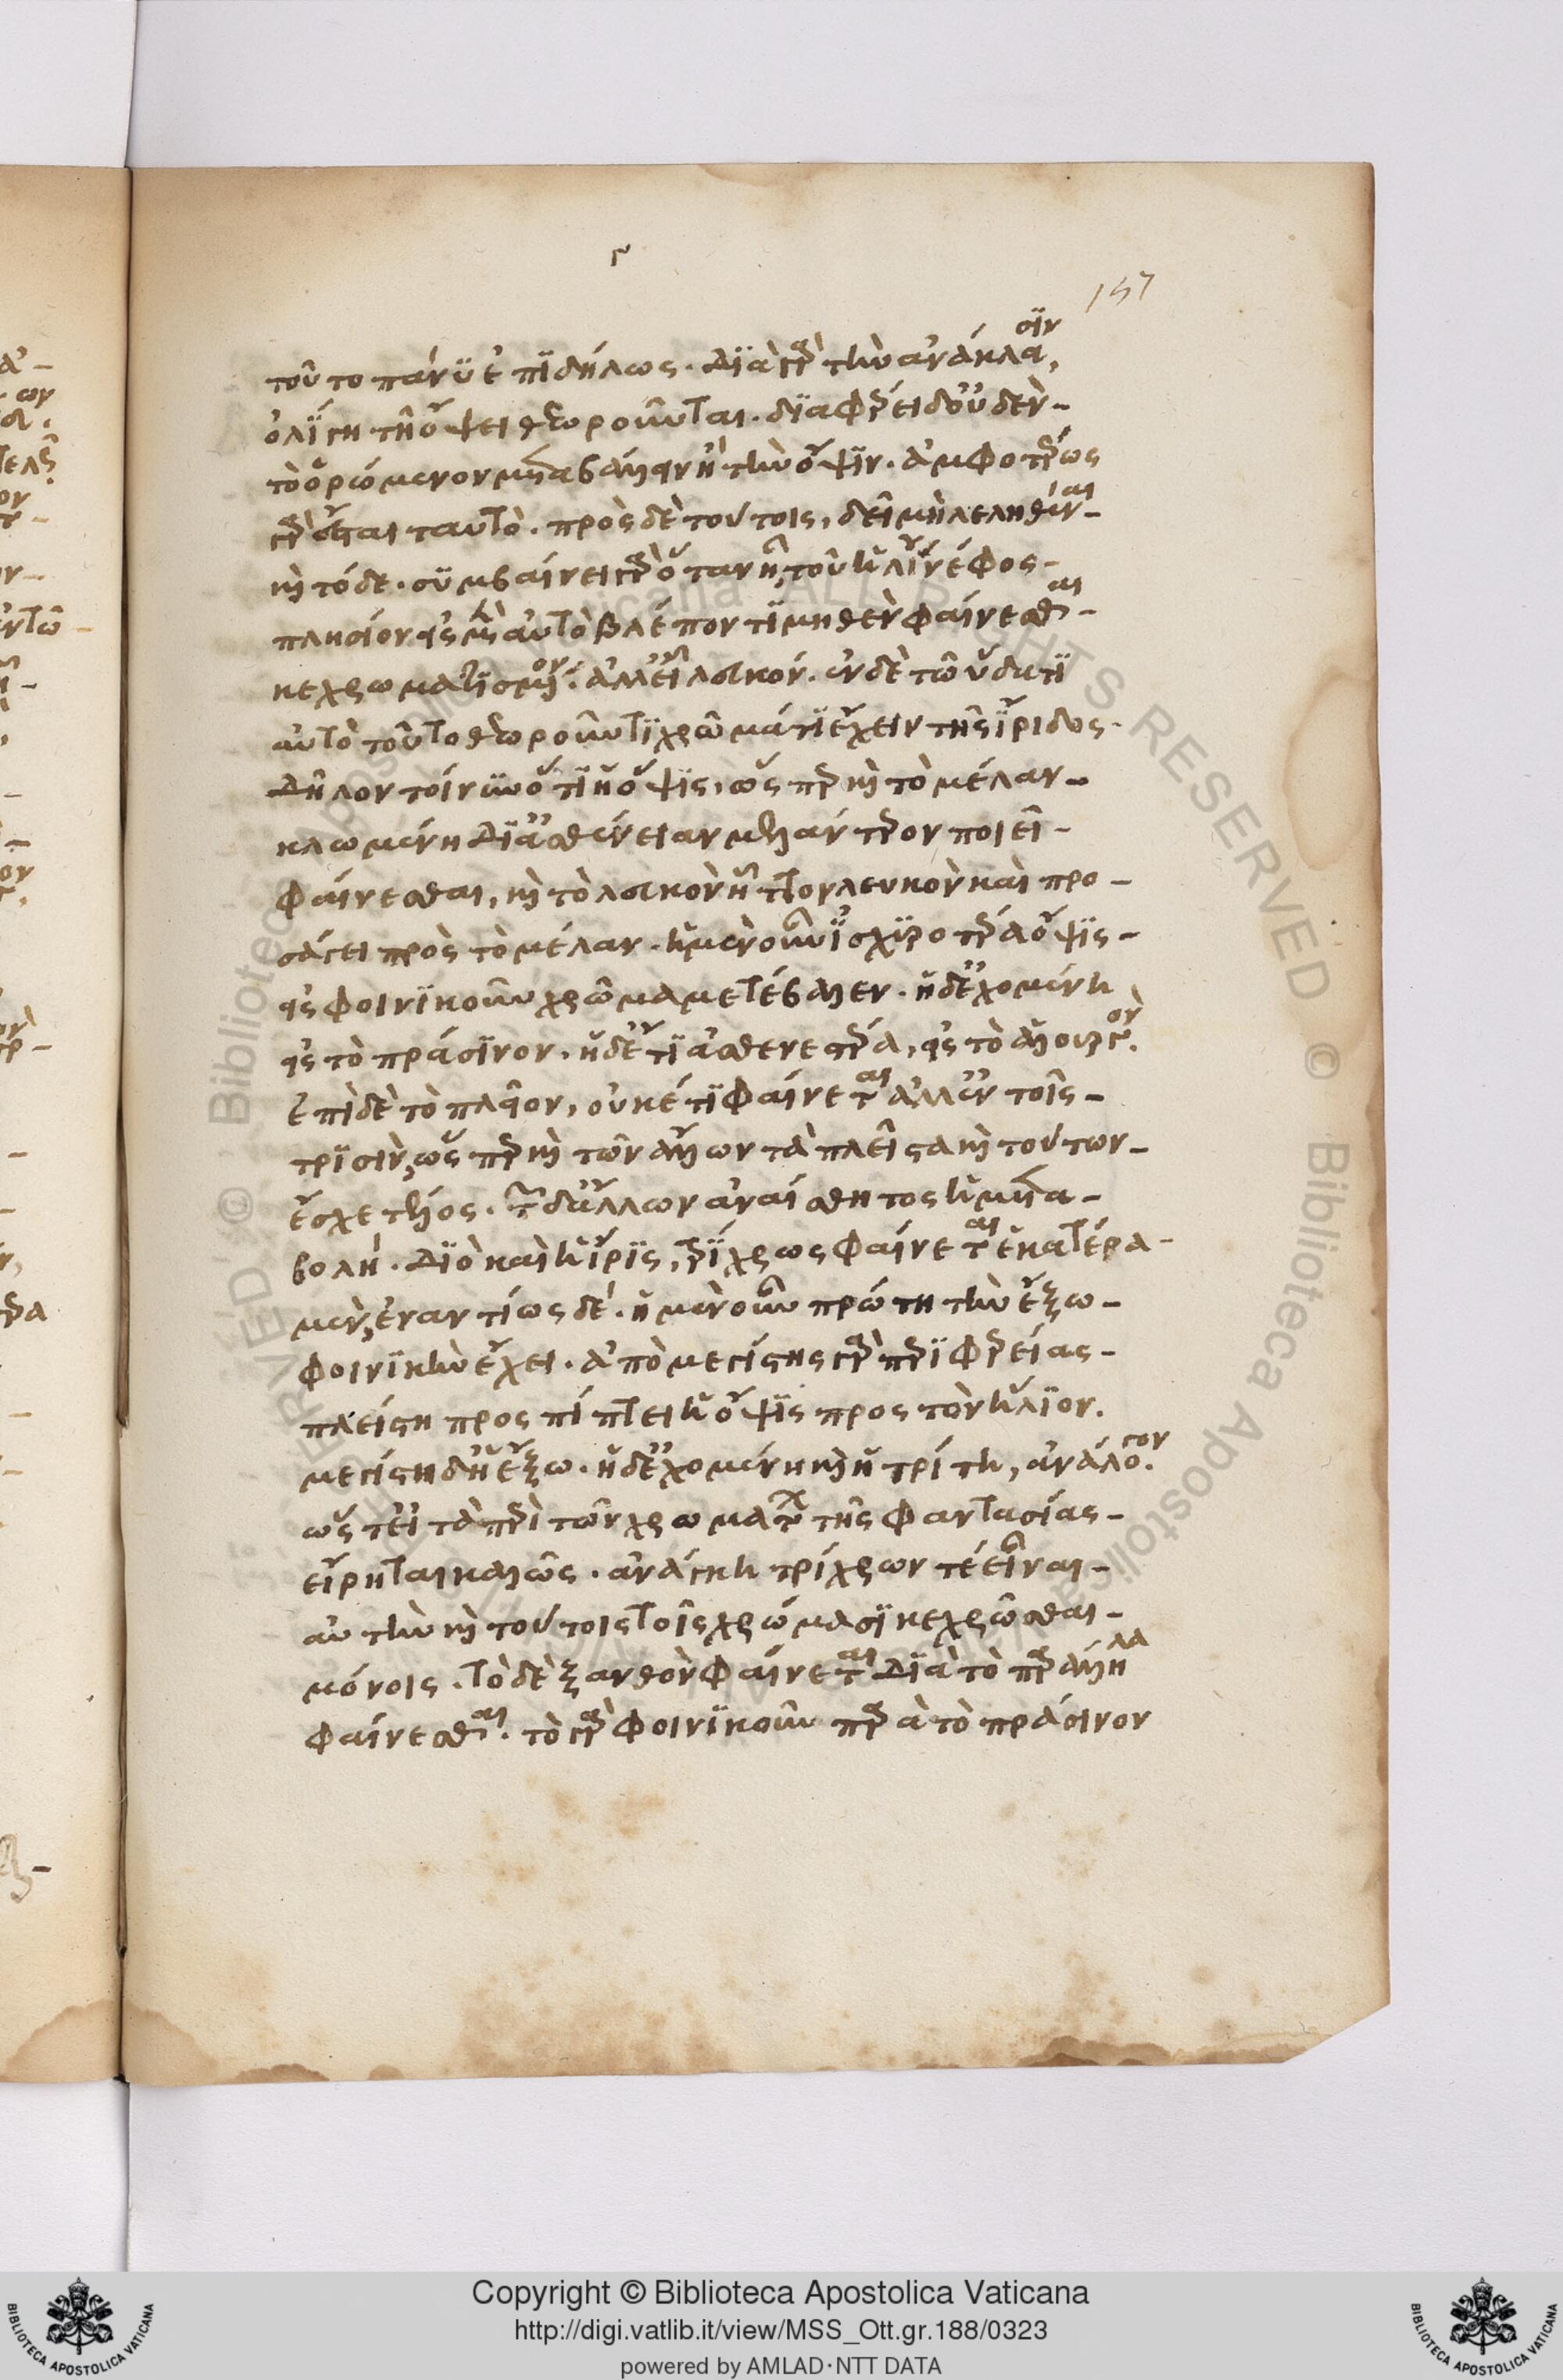 157
τοῦτο πάνυ ἐπιδήλως. διὰ γὰρ τὴν ἀνάκλασιν,
ὀλίγη τῇ ὄψει θεωροῦνται. διαφέρει δ' οὐδὲν
τὸ ὁρώμενον μεταβάλλειν ἢ τὴν ὄψιν. ἀμφοτέρως
γὰρ ἔσται ταυτὸ. πρὸς δὲ τούτοις, δεῖ μὴ λεληθέναι
καὶ τόδε. συμβαίνει γὰρ ὅταν ᾖ, τοῦ ἡλίου νέφος
πλησίον εἰς μὲν αὐτὸ βλέποντι μηθὲν φαίνεσθαι
κεχρωματισμένον. ἀλλ' εἶναι λευκόν. ἐν δὲ τῶ ὕδατι
αὐτὸ τοῦτο θεωροῦντι χρῶμά τι ἔχειν τῆς ἴριδος.
δῆλον τοίνυν ὅτι ἡ ὄψις, ὥσπερ καὶ τὸ μέλαν
κλωμένη δι' ἀσθένειαν μελάντερον ποιεῖ
φαίνεσθαι, καὶ τὸ λευκὸν ἧττον λευκὸν καὶ προ
σάγει πρὸς τὸ μέλαν. ἡ μὲν οὖν ἰσχυροτέρα ὄψις
εἰς φοινικοῦν χρῶμα μετέβαλεν. ἡ δ' ἐχομένη
εἰς τὸ πράσινον. ἡ δ' ἔτι ἀσθενεστέρα, εἰς τὸ ἁλουργόν.
ἐπὶ δὲ τὸ πλεῖον, οὐκέτι φαίνεται ἀλλ' ἐν τοῖς
τρισὶν, ὥσπερ καὶ τῶν ἄλλων τὰ πλεῖστα καὶ τούτων
ἔσχε τέλος. τῶν δ' ἄλλων ἀναίσθητος ἡ μετα
βολή. διὸ καὶ ἡ ἶρις, τρίχρως φαίνεται ἑκατέρα
μὲν, ἐναντίως δέ. ἡ μὲν οὖν πρώτη τὴν ἔξω
φοινικῆν ἔχει. ἀπὸ μεγίστης γὰρ περιφερείας
πλείστη προσπίπτει ἡ ὄψις πρὸς τὸν ἥλιον.
μεγίστη δ' ἡ ἔξω. ἡ δ' ἐχομένη καὶ ἡ τρίτη, ἀνάλογον.
ὥστ' εἰ τὰ περὶ τῶν χρωμάτων τῆς φαντασίας
εἴρηται καλῶς. ἀνάγκη τρίχρων τέ εἶναι
αὐτὴν καὶ τούτοις τοῖς χρώμασι κεχρῶσθαι
μόνοις. τὸ δὲ ξανθὸν φαίνεται διὰ τὸ παράλληλα
φαίνεσθαι. τὸ γὰρ φοινικοῦν παρὰ τὸ πράσινον
Copyright © Biblioteca Apostolica Vaticana
http://digi.vatlib.it/view/MSS_Ott.gr.188/0323
powered by AMLAD·NTT DATA